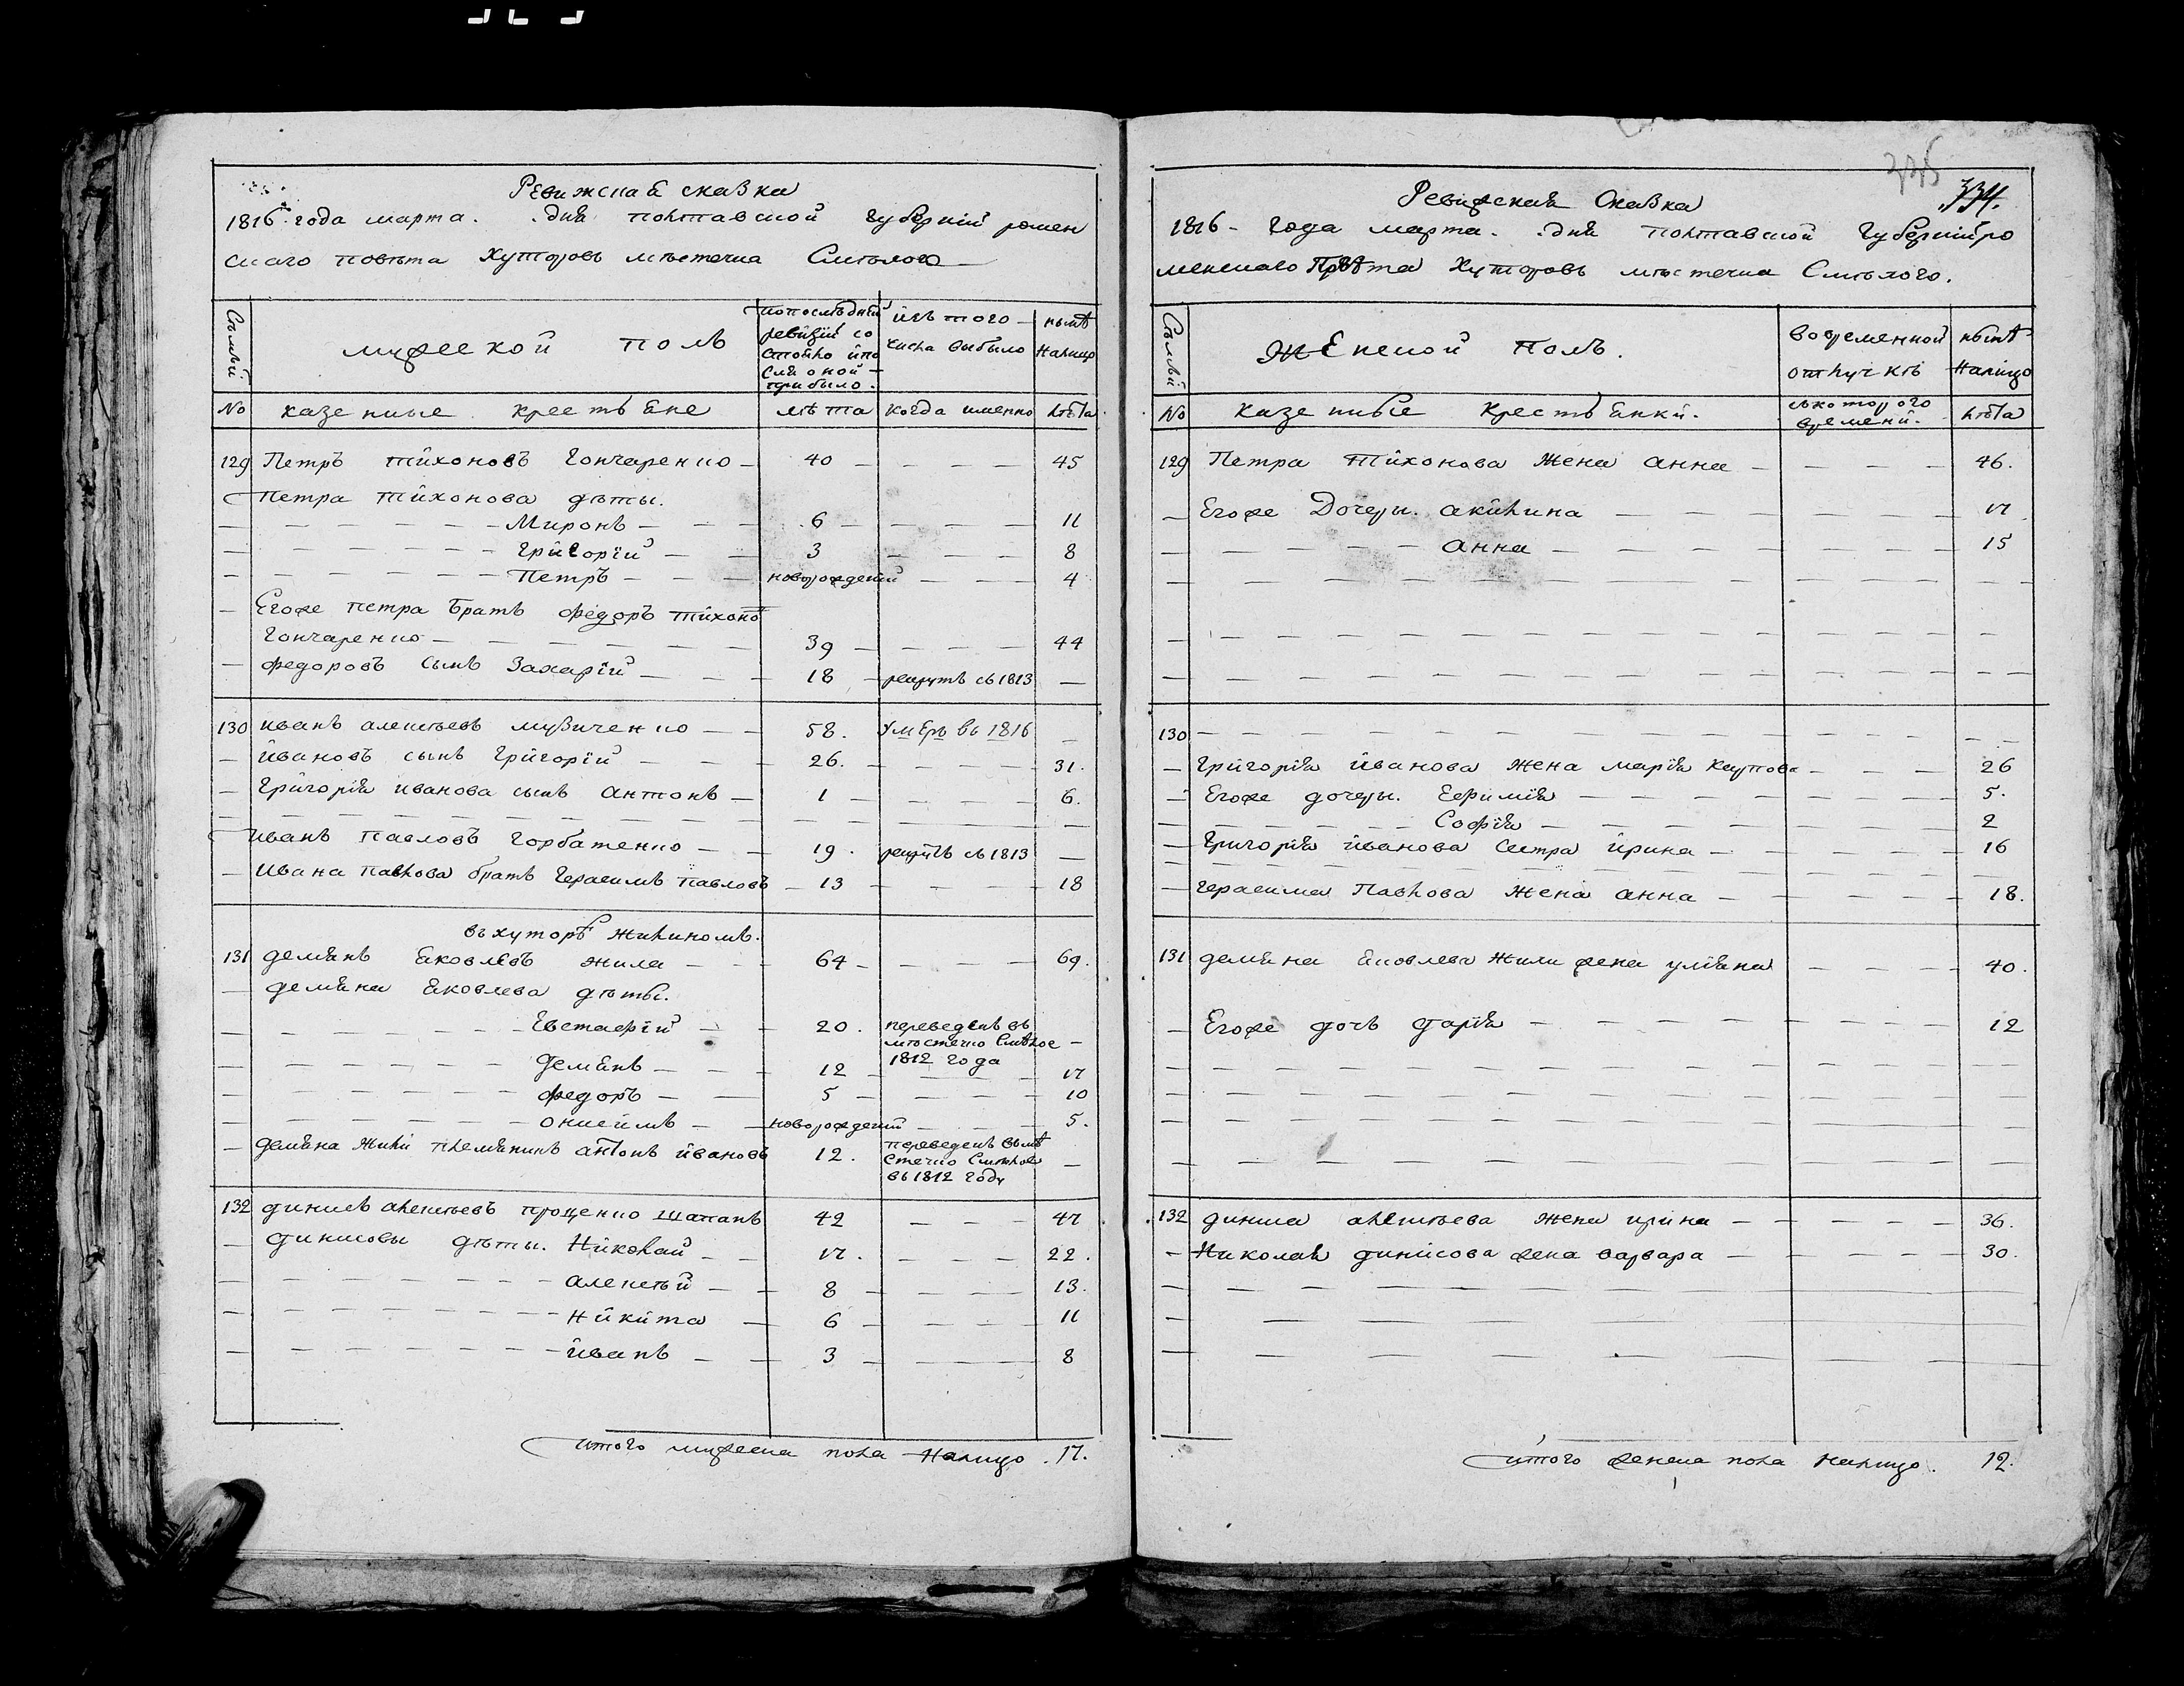 Ревижская сказка
1816 года марта. дня полтавской губернїи ромен
скаго повѣта хуторовъ мѣстечка Смѣлого
Семьи
мужеской полъ
попослѣдней ревизїи со стояло ипо сля оной прибыло.
изъ того числа выбыло
нынѣ Налицо
No казенные крестьяне лѣта когда именно лѣта
129 Петръ тихоновъ Гончаренко 40 45
Петра тихонова дѣты.
Миронъ 6 11
Григорїй 3 8
Петръ новорожденїй 4
Егоже петра братъ федоръ тихоно
Гончаренко 39 44
федоровъ сынъ Захарїй 18 рекрутъ съ 1813
130 иванъ алексѣевъ музиченко 58. умеръ въ 1816
ивановъ сынъ Григорїй 26. 31.
Григорїя иванова сынъ антонъ 1 6.
иванъ павловъ горбатенко 19. рекрутъ съ 1813
ивана павлова братъ герасимъ павловъ 13 18
въ хуторѣ жилиномъ.
131 демянъ яковлевъ жила 64 69.
демяна яковлева дѣты.
Евстафїй 20. переведенъ въ
мѣстечко Смѣлое
1812 года
Демянъ 12 17
федоръ 5 10
онисимъ новорожденїй 5.
демяна жили племяникъ антонъ ивановъ 12. переведенъ вмѣ
стечко Смѣлое
въ 1812 годѣ
132 динисъ алексѣевъ прощенко шапанъ 42 47
динисовы дѣты. Николай 17. 22.
алексѣй 8 13.
Никита 6 11
иванъ 3 8
итого мужеска пола налицо. 17.
335
334.
Ревижская Сказка
1816 года марта. дня полтавской губернїи ро
менскаго Повѣта хуторовъ мѣстечка Смѣлого.
Семьи
Женской полъ.
вовременной отлучкѣ
нынѣ Налицо
No казенные крестьянки. съкоторого времени. лѣта
129 Петра тихонова жена анна 46.
Егоже Дочеры. акилина 17
анна 15
130
Григорїя иванова жена марїя карпова 26
Егоже дочеры. Ефимїя 5.
Софїя 2
Григорїя иванова сестра ирина 16
герасима павлова жена анна 18.
131 демяна яковлева жили жена улїяна 40.
Егоже дочь дарїя 12
132 диниса алексѣева жена ирина 36.
Николая динисова жена варвара 30.
итого женска пола налицо. 12.